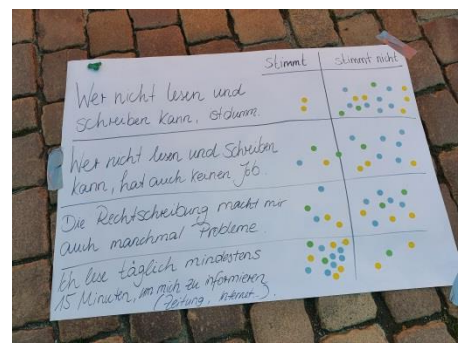 Stimmt stimmt nicht
Wer nicht lesen und
schreiben kann, ist dumm.
Wer nicht lesen und schreiben
kann, hat auch keinen Job.
Die Rechtschreibung macht mir
auch manchmal Probleme.
Ich lese täglich mindestens
15 Minuten, um mich zu informieren
(Zeitung, Internet...).